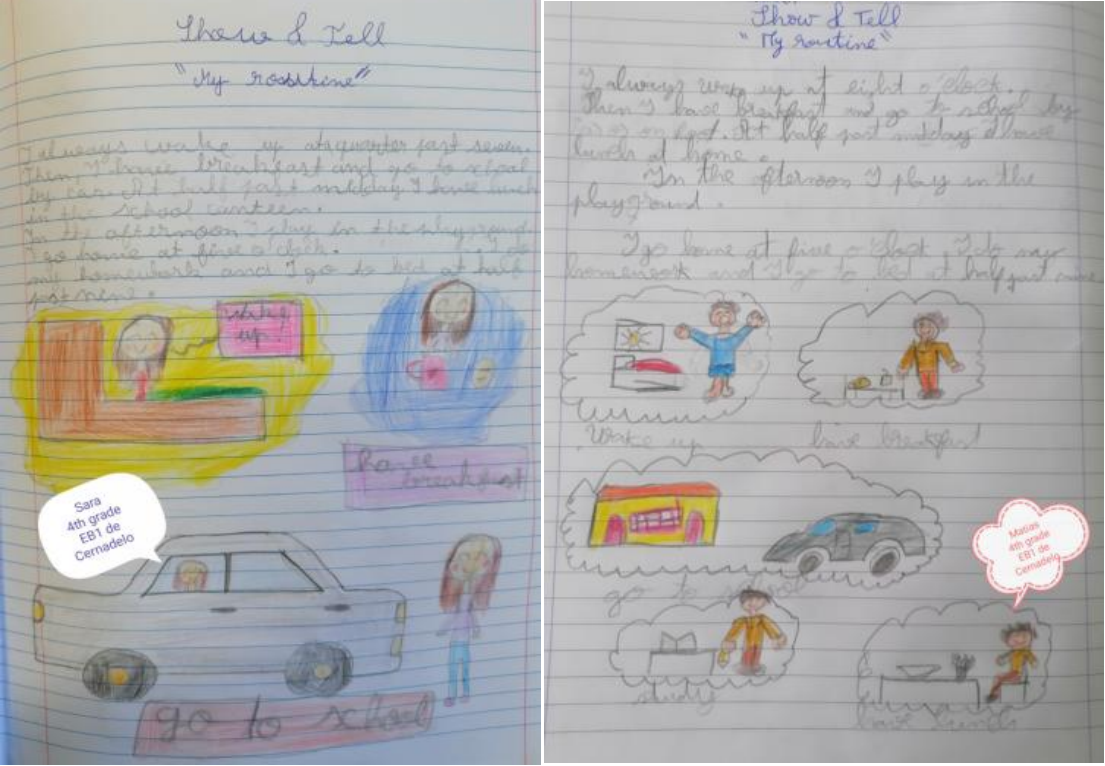 Show & Tell
"My rosstine"
I always wake up at quarter past seven.
Then, I have breakfast and go to school
by car. At half past midday I have lunch
in the school canteen.
In the afternoon I play in the playground.
I go home at five o'clock. I do
my homework and I go to bed at half
past nine.
wake
up!
Have
breakfast
Sara
4th grade
EB1 de
Cernadelo
go to school
Show & Tell
"My routine"
I always wake up at eight o'clock.
Then I have breakfast and go to school by
on foot. At half past midday I have
lunch at home.
In the afternoon I play in the
playground.
I go home at five o'clock, I do my
homework and I go to bed at half past nine
Wake up
have breakfast
Matias
4th grade
EB1 de
Cernadelo
go to school
study
have lunch